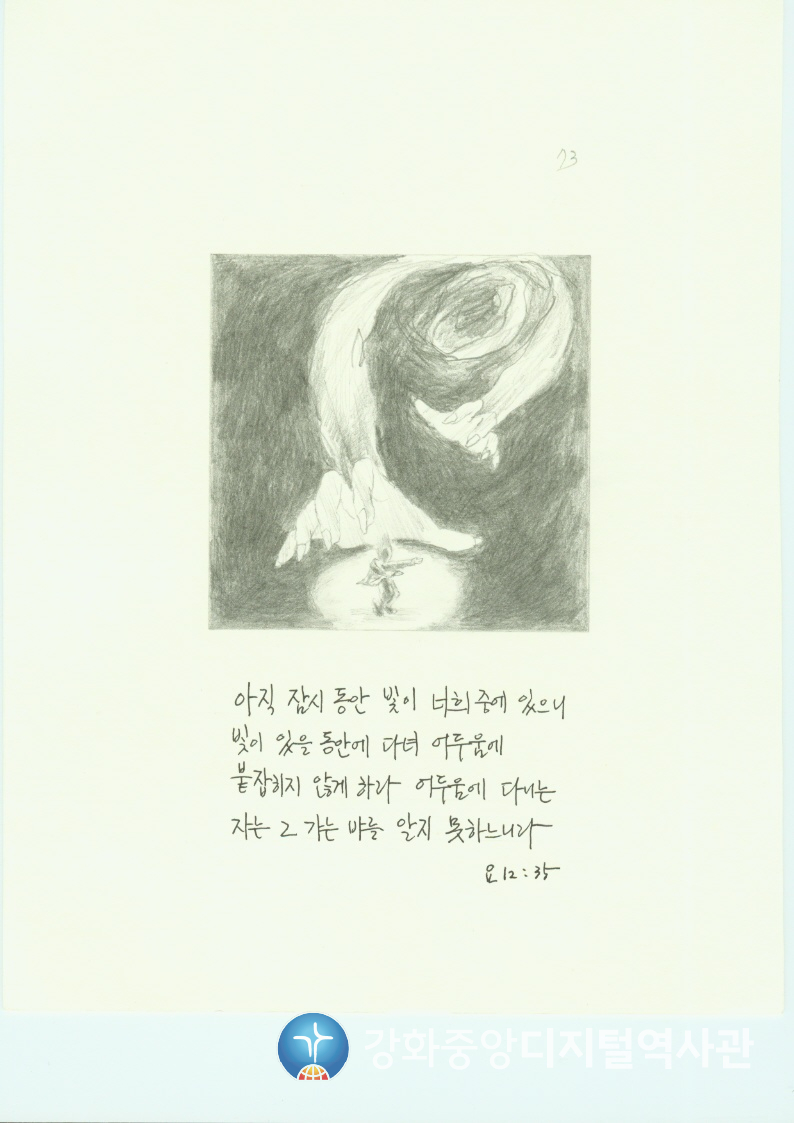 23
아직 잠시 동안 빛이 너희 중에 있으니
빛이 있을 동안에 다녀 어두움에
붙잡히지 않게 하라 어두움에 다니는
자는 그 가는 바를 알지 못하느니라
요 12:35
강화중앙디지털역사관